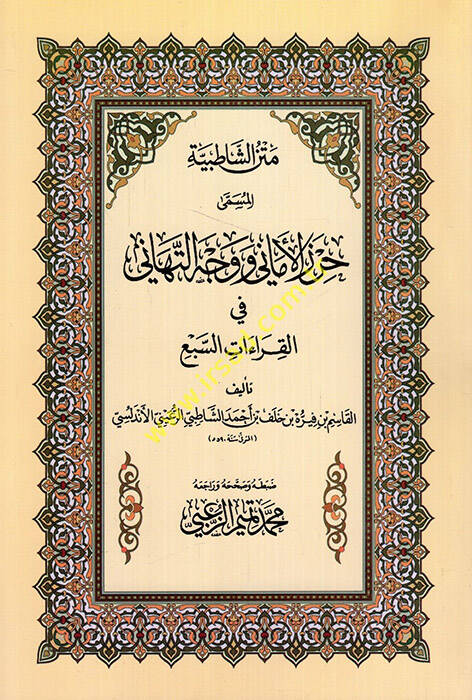 مَتْنُ الشَّاطِبِيَّة
المُسَمَّىٰ
حِرْزُ الأَمَانِي وَوَجْهُ التَّهَانِي
فِي
القِرَاءَاتِ السَّبْعِ
تأليف
القَاسِم بْن فِيرُّه بْن خَلَف بْن أَحْمَد الشَّاطِبِيّ الرُّعَيْنِيّ الأَنْدَلُسِيّ
(المتوفى سنة ٥٩٠ هـ)
ضبطه وصححه وراجعه
محمد تميم الزعبي
www.irssad.com.tr